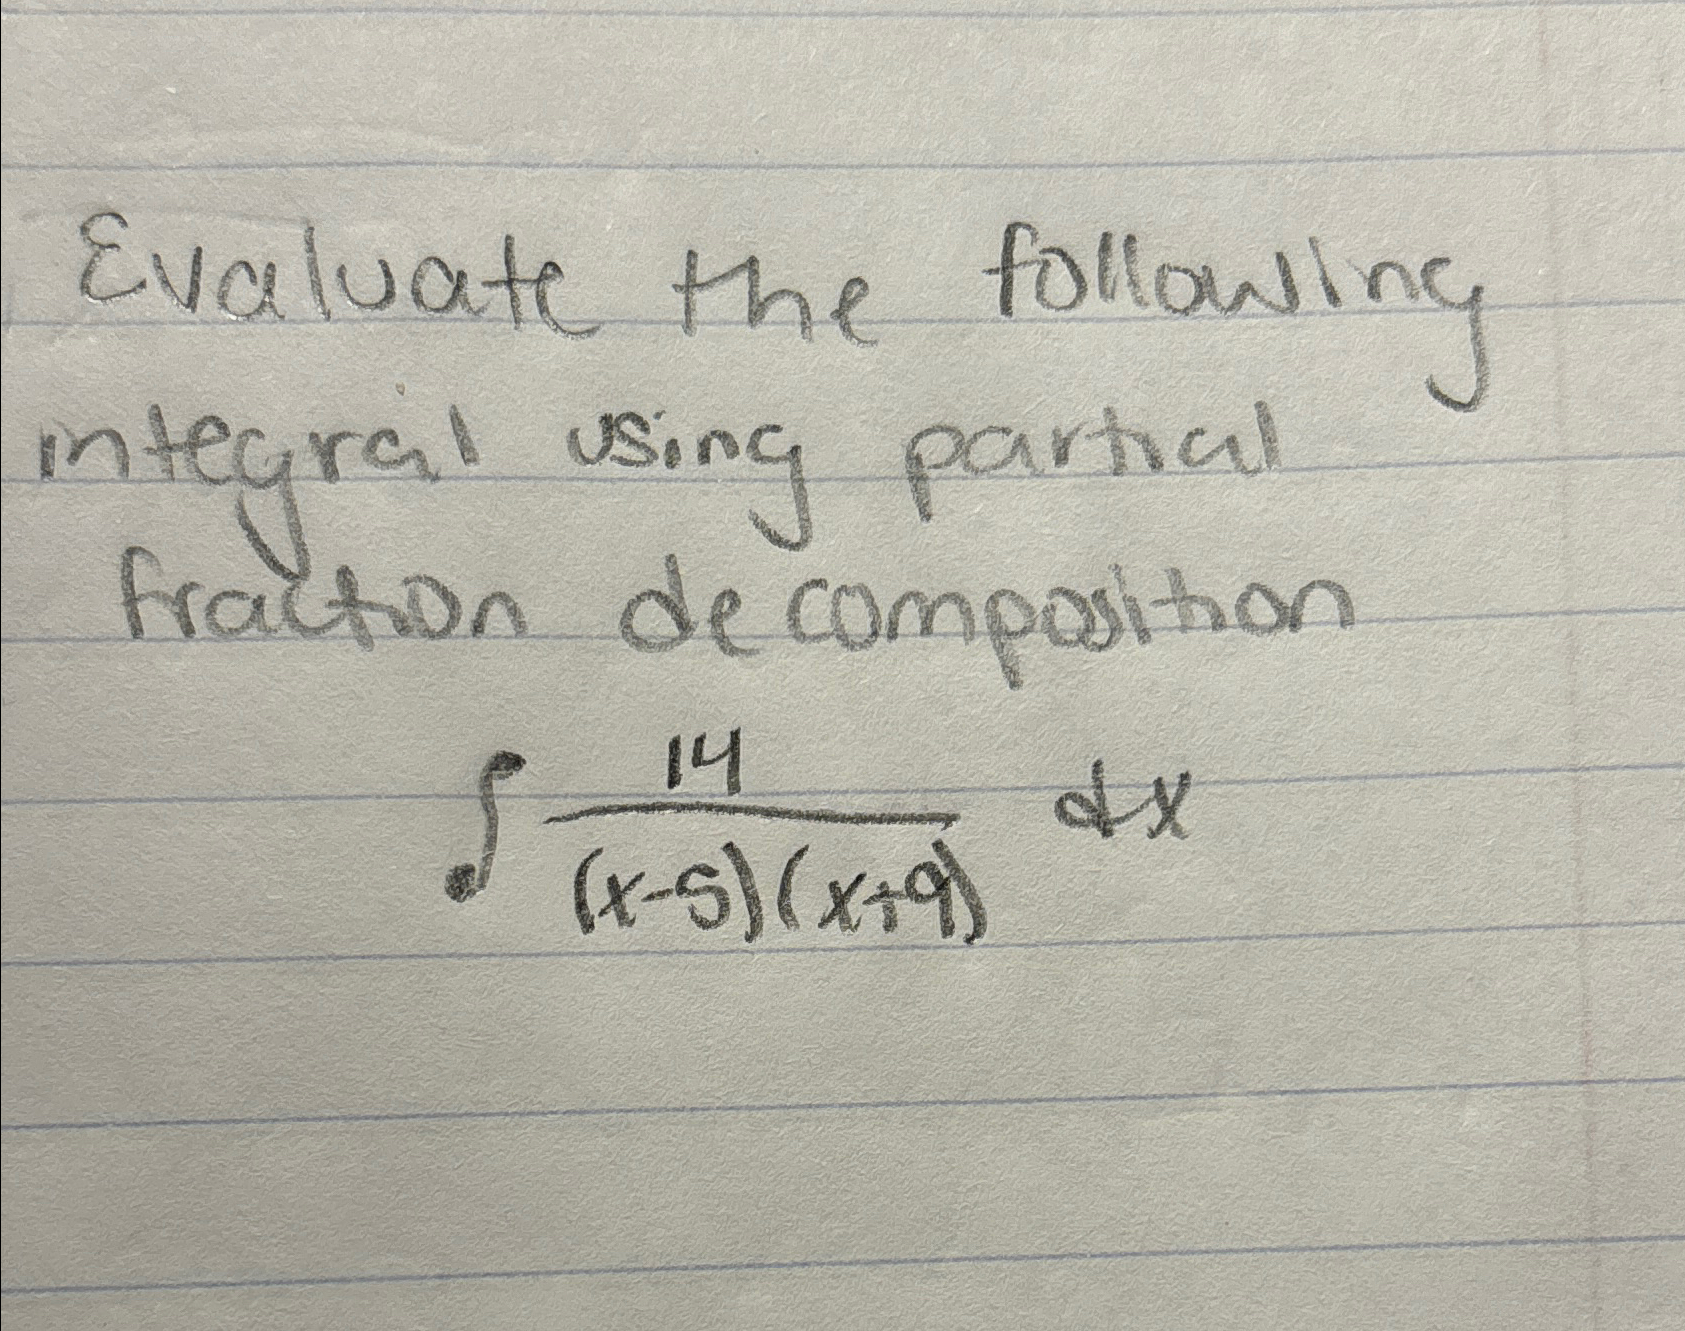 Evaluate the following
integral using partial
fraction decomposition
∫ 14/((x-5)(x+9)) dx